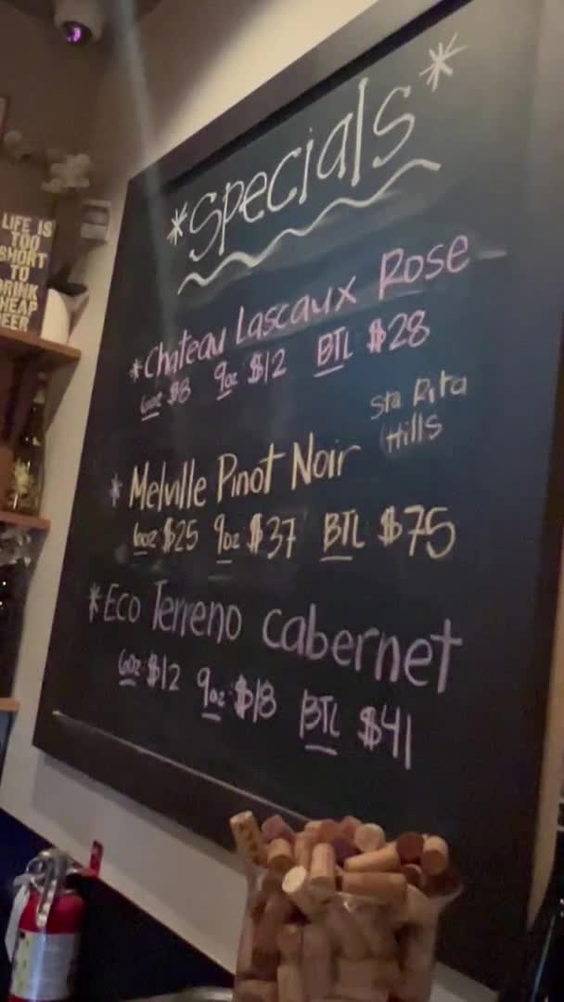 *Specials*
*Chateau Lascaux Rose
6oz $8 9oz $12 BTL $28
* Melville Pinot Noir
Sta Rita
Hills
6oz $25 9oz $37 BTL $75
*Eco Terreno Cabernet
6oz $12 9oz $18 BTL $41
LIFE IS
TOO
SHORT
TO
DRINK
CHEAP
BEER